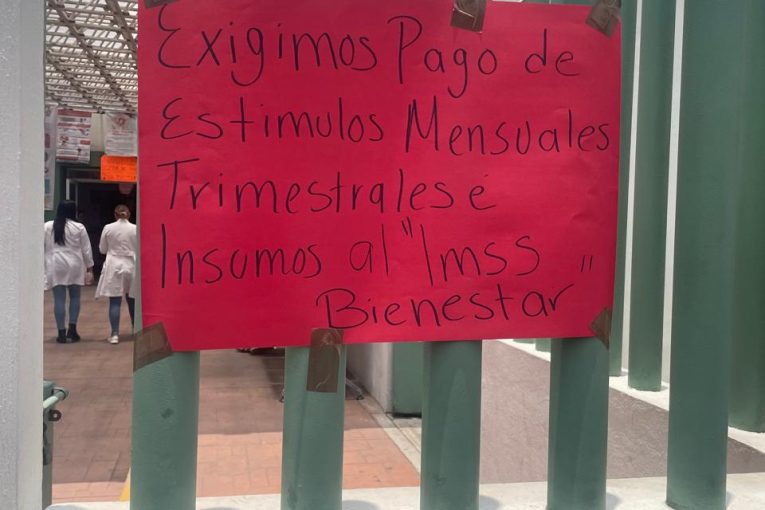 Exigimos Pago de
Estimulos Mensuales
Trimestrales é
Insumos al "Imss
Bienestar"